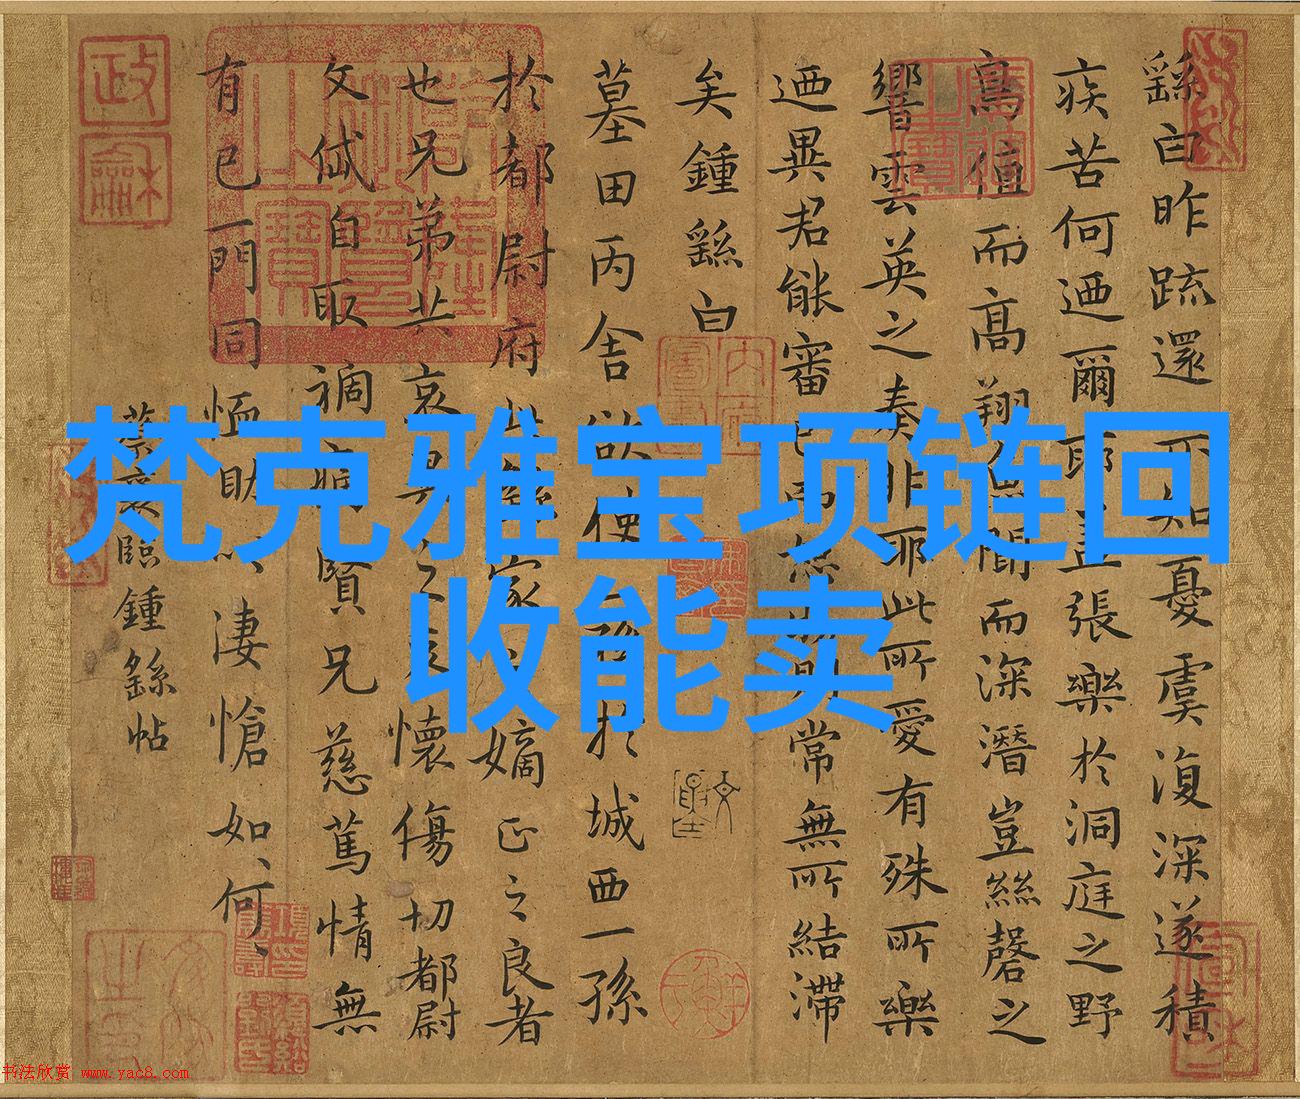 繇白昨疏還示知憂虞復深遂積
疾苦何迺爾耶蓋張樂於洞庭之野
鳥值而高翔 聞而深潛豈絲磬之
響雲英之奏非耶此所愛有殊所樂
迺異君能審己而 常無所結滯
矣鍾繇白
墓田丙舍欲使一孫於城西一孫
於都尉府 家 嫡正之良者
也兄弟共哀 懷傷切都尉
文岱自取禍 賢兄慈篤情無
有已一門同恤助 悽愴如何
蔡襄臨鍾繇帖
政
龢
梵克雅宝项链回
收能卖
书法欣赏 www.yac8.com